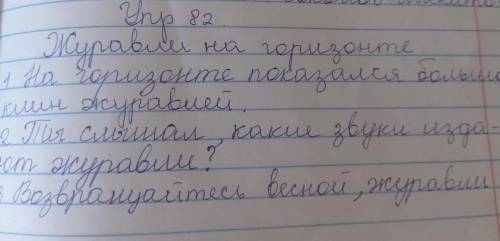 Упр 82.
Журавли на горизонте
1 На горизонте показался больш
клин журавлей.
2 Ты слышал, какие звуки изда-
ют журавли?
3 Возвращайтесь весной, журавли